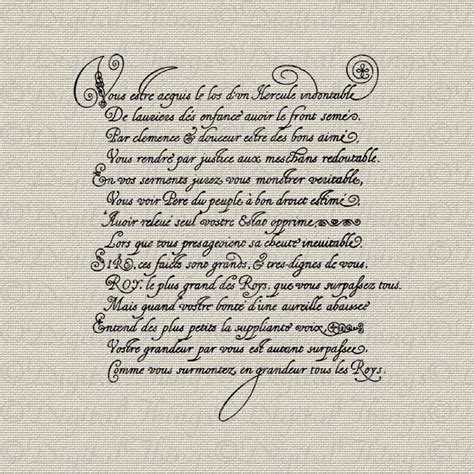 Vous estre acquis le los d'vn Hercule indontable
De lauriers dés enfance auoir le front semé,
Par clemence & douceur estre des bons aimé,
Vous rendre par justice aux meschans redoutable.
En voz serments jurez vous monstrer veritable,
Vous voir Pere du peuple à bon droict estimé,
Auoir releué seul vostre Estat opprimé,
Lors que tous presageoient sa cheute ineuitable.
SIRE, ces faicts sont grands, & tres-dignes de vous.
ROY, le plus grand des Roys, que vous surpassez tous.
Mais quand vostre bonté d'une aureille abaissee
Entend des plus petits la suppliante voix
Vostre grandeur par vous est autant surpassee,
Comme vous surmontez en grandeur tous les Roys.